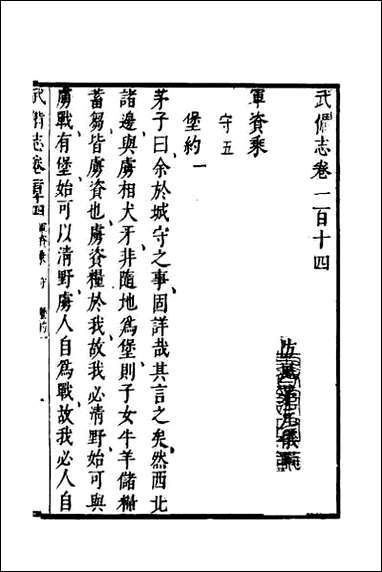 武備志卷一百十四
軍資乘
守五
堡約一
茅子曰余於城守之事固詳哉其言之矣然西北
諸邊與虜相犬牙非隨地為堡則子女牛羊儲糒
蓄芻皆虜資也虜資糧於我故我必清野始可與
虜戰有堡始可以清野虜人自為戰故我必人自
武備志卷一百十四